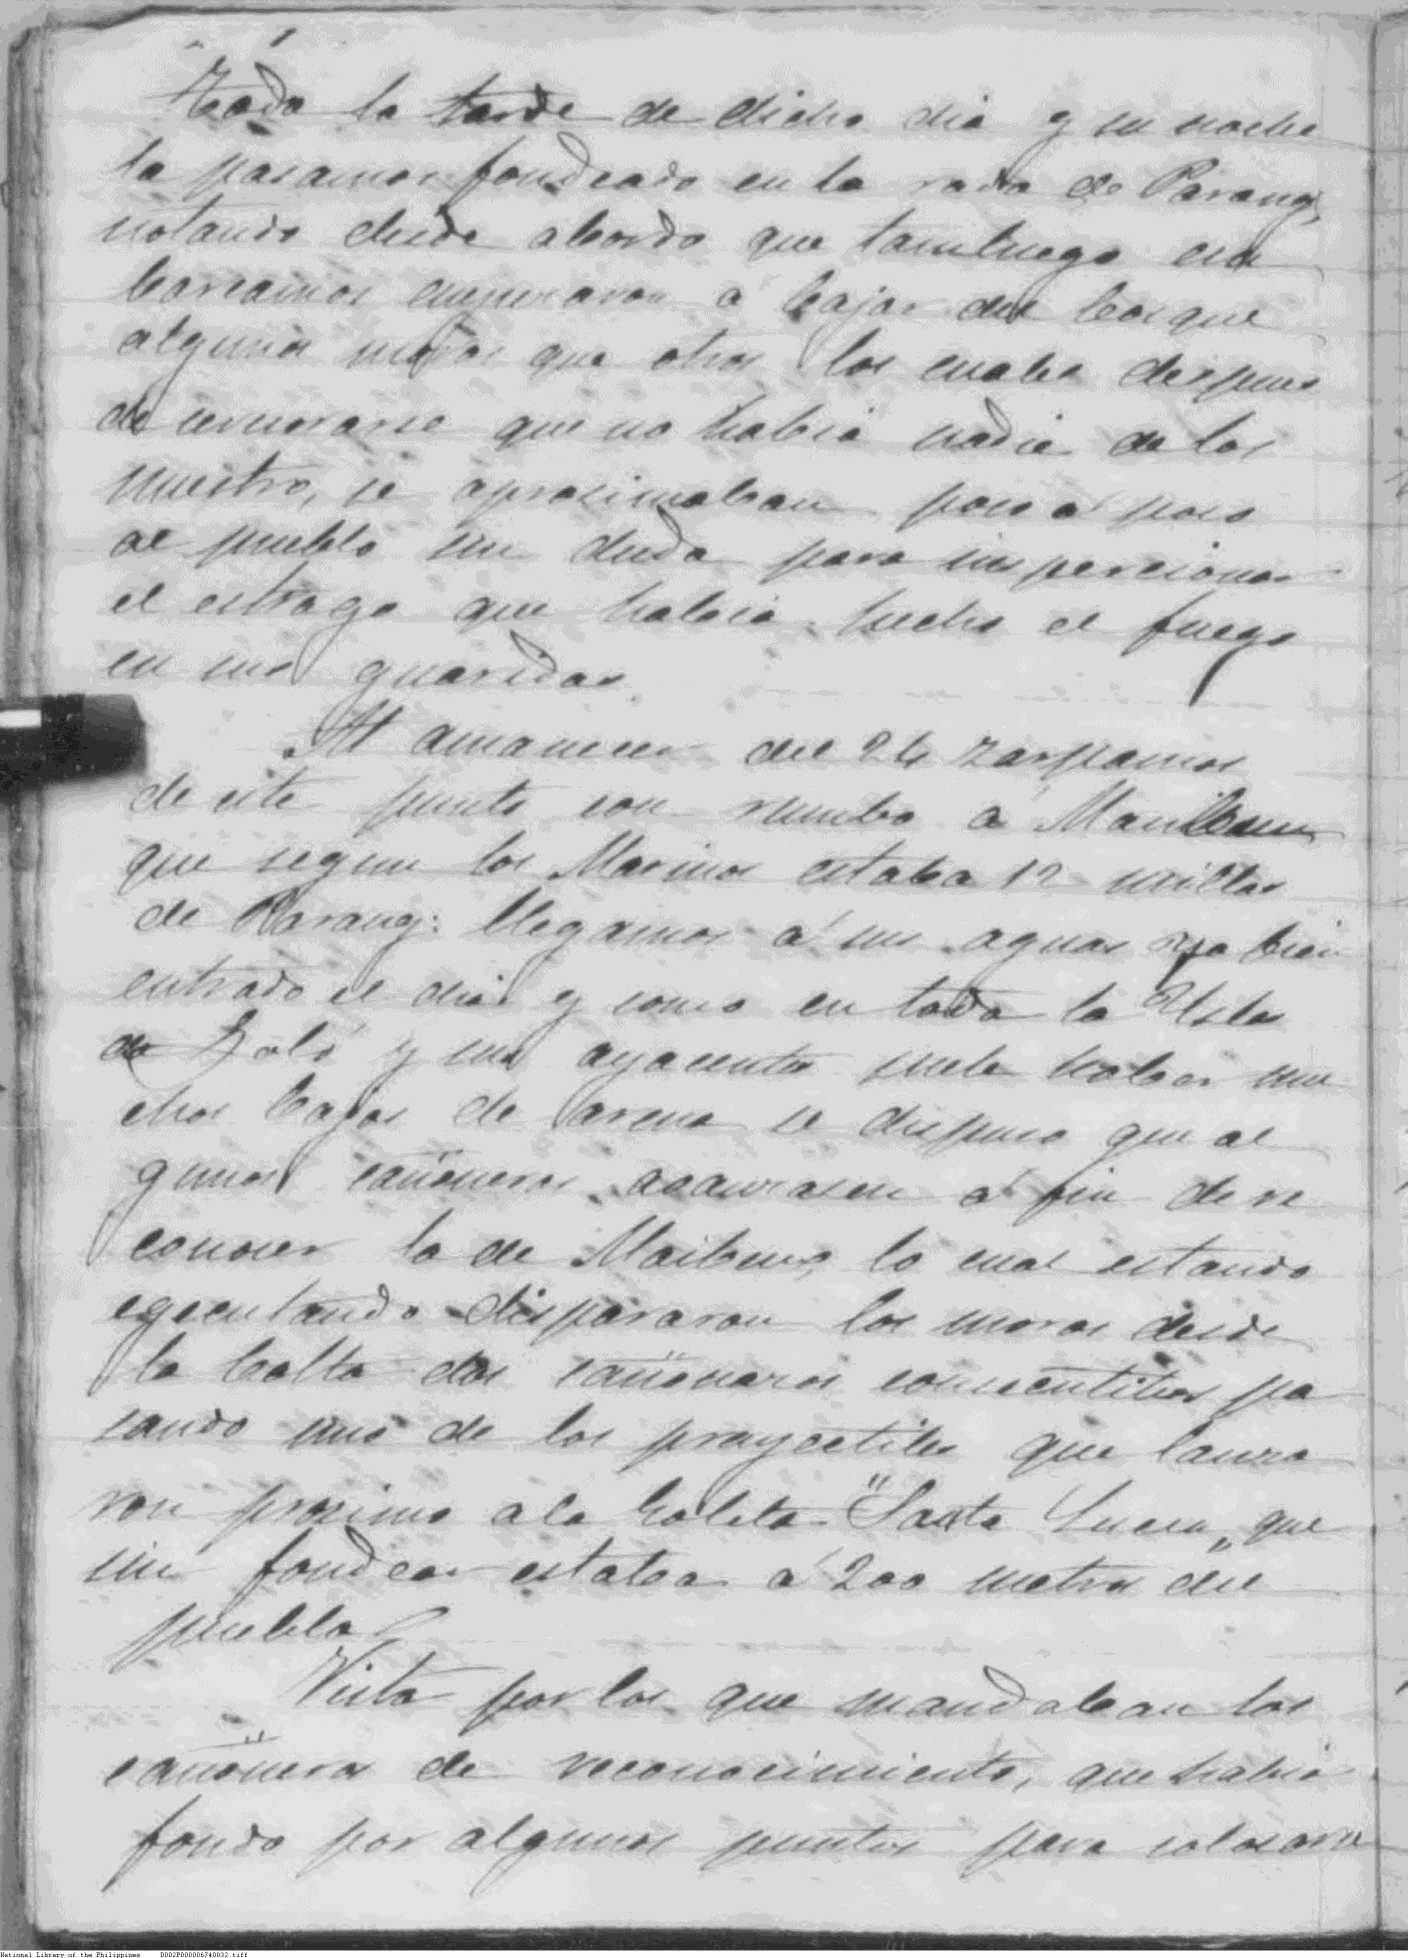 Toda la tarde de dicho dia y su noche
la pasamos fondeado en la rada de Parang,
notando desde abordo que tanluego em
barcamos empezaron á bajar del bosque
algunos moros que otros los cuales despues
de cerciorarse que no habia nadie de los
nuestro, se aprosimaban poco á poco
al pueblo sin duda para inspercionar
el estrago que habia hecho el fuego
en sus guaridas.
Al amanecer del 26 zarpamos
de este punto con rumbo á
que segun los Marinos estaba 12 millas
de Parang: llegamos á sus aguas ya bien
entrado el dia y como en toda la Ysla
de Joló y sus ayacentes suele haber mu
chos bajos de arena se dispuso que al
gunos cañoneros avanzasen á fin de re
conocer la de Maibung, lo cual estando
egecutando dispararon los moros desde
la Cotta dos cañonazos consecutibos pa
sando uno de los proyectiles que lanza
ron prosimo a la Goleta "Santa Lucia„ que
sin fondear estaba á 200 metros del
pueblo.
Visto por los que mandaban los
cañoneros de reconocimiento, que habia
fondo por algunos puntos para colocarse